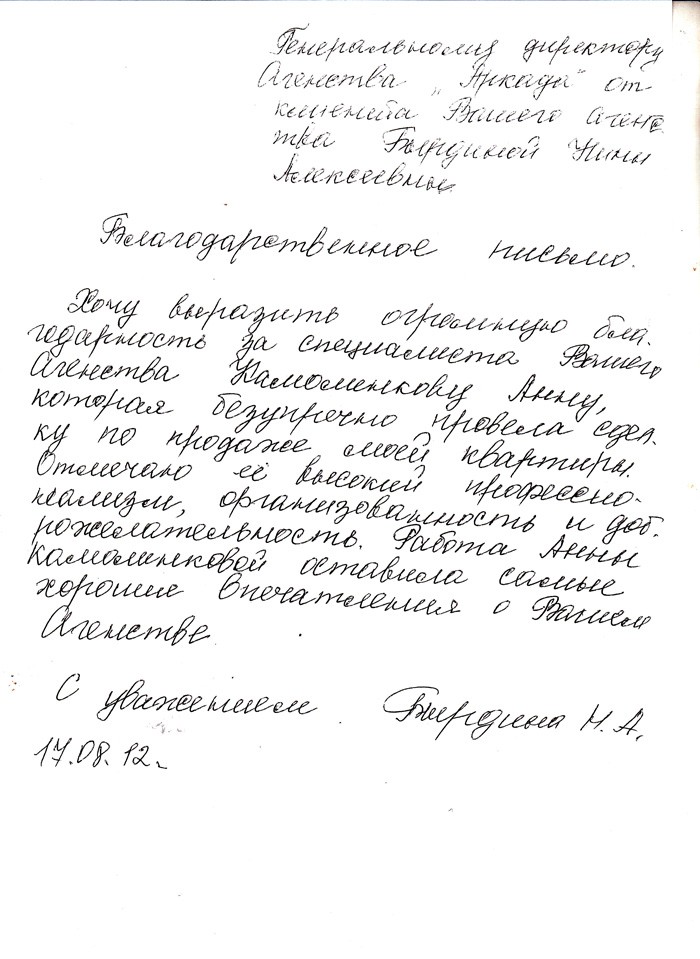 Генеральному директору
Агенства „Аркада" от
клиента Вашего агенс
тва Бырдиной Нины
Алексеевны.
Благодарственное письмо.
Хочу выразить огромную бла-
годарность за специалиста Вашего
Агенства Камоленкову Анну,
которая безупречно провела сдел-
ку по продаже моей квартиры.
Отмечаю её высокий професно-
нализм, организованность и доб-
рожелательность. Работа Анны
Камоленковой оставила самые
хорошие впечатления о Вашем
Агенстве
С уважением Бырдина Н. А.
17.08.12г.